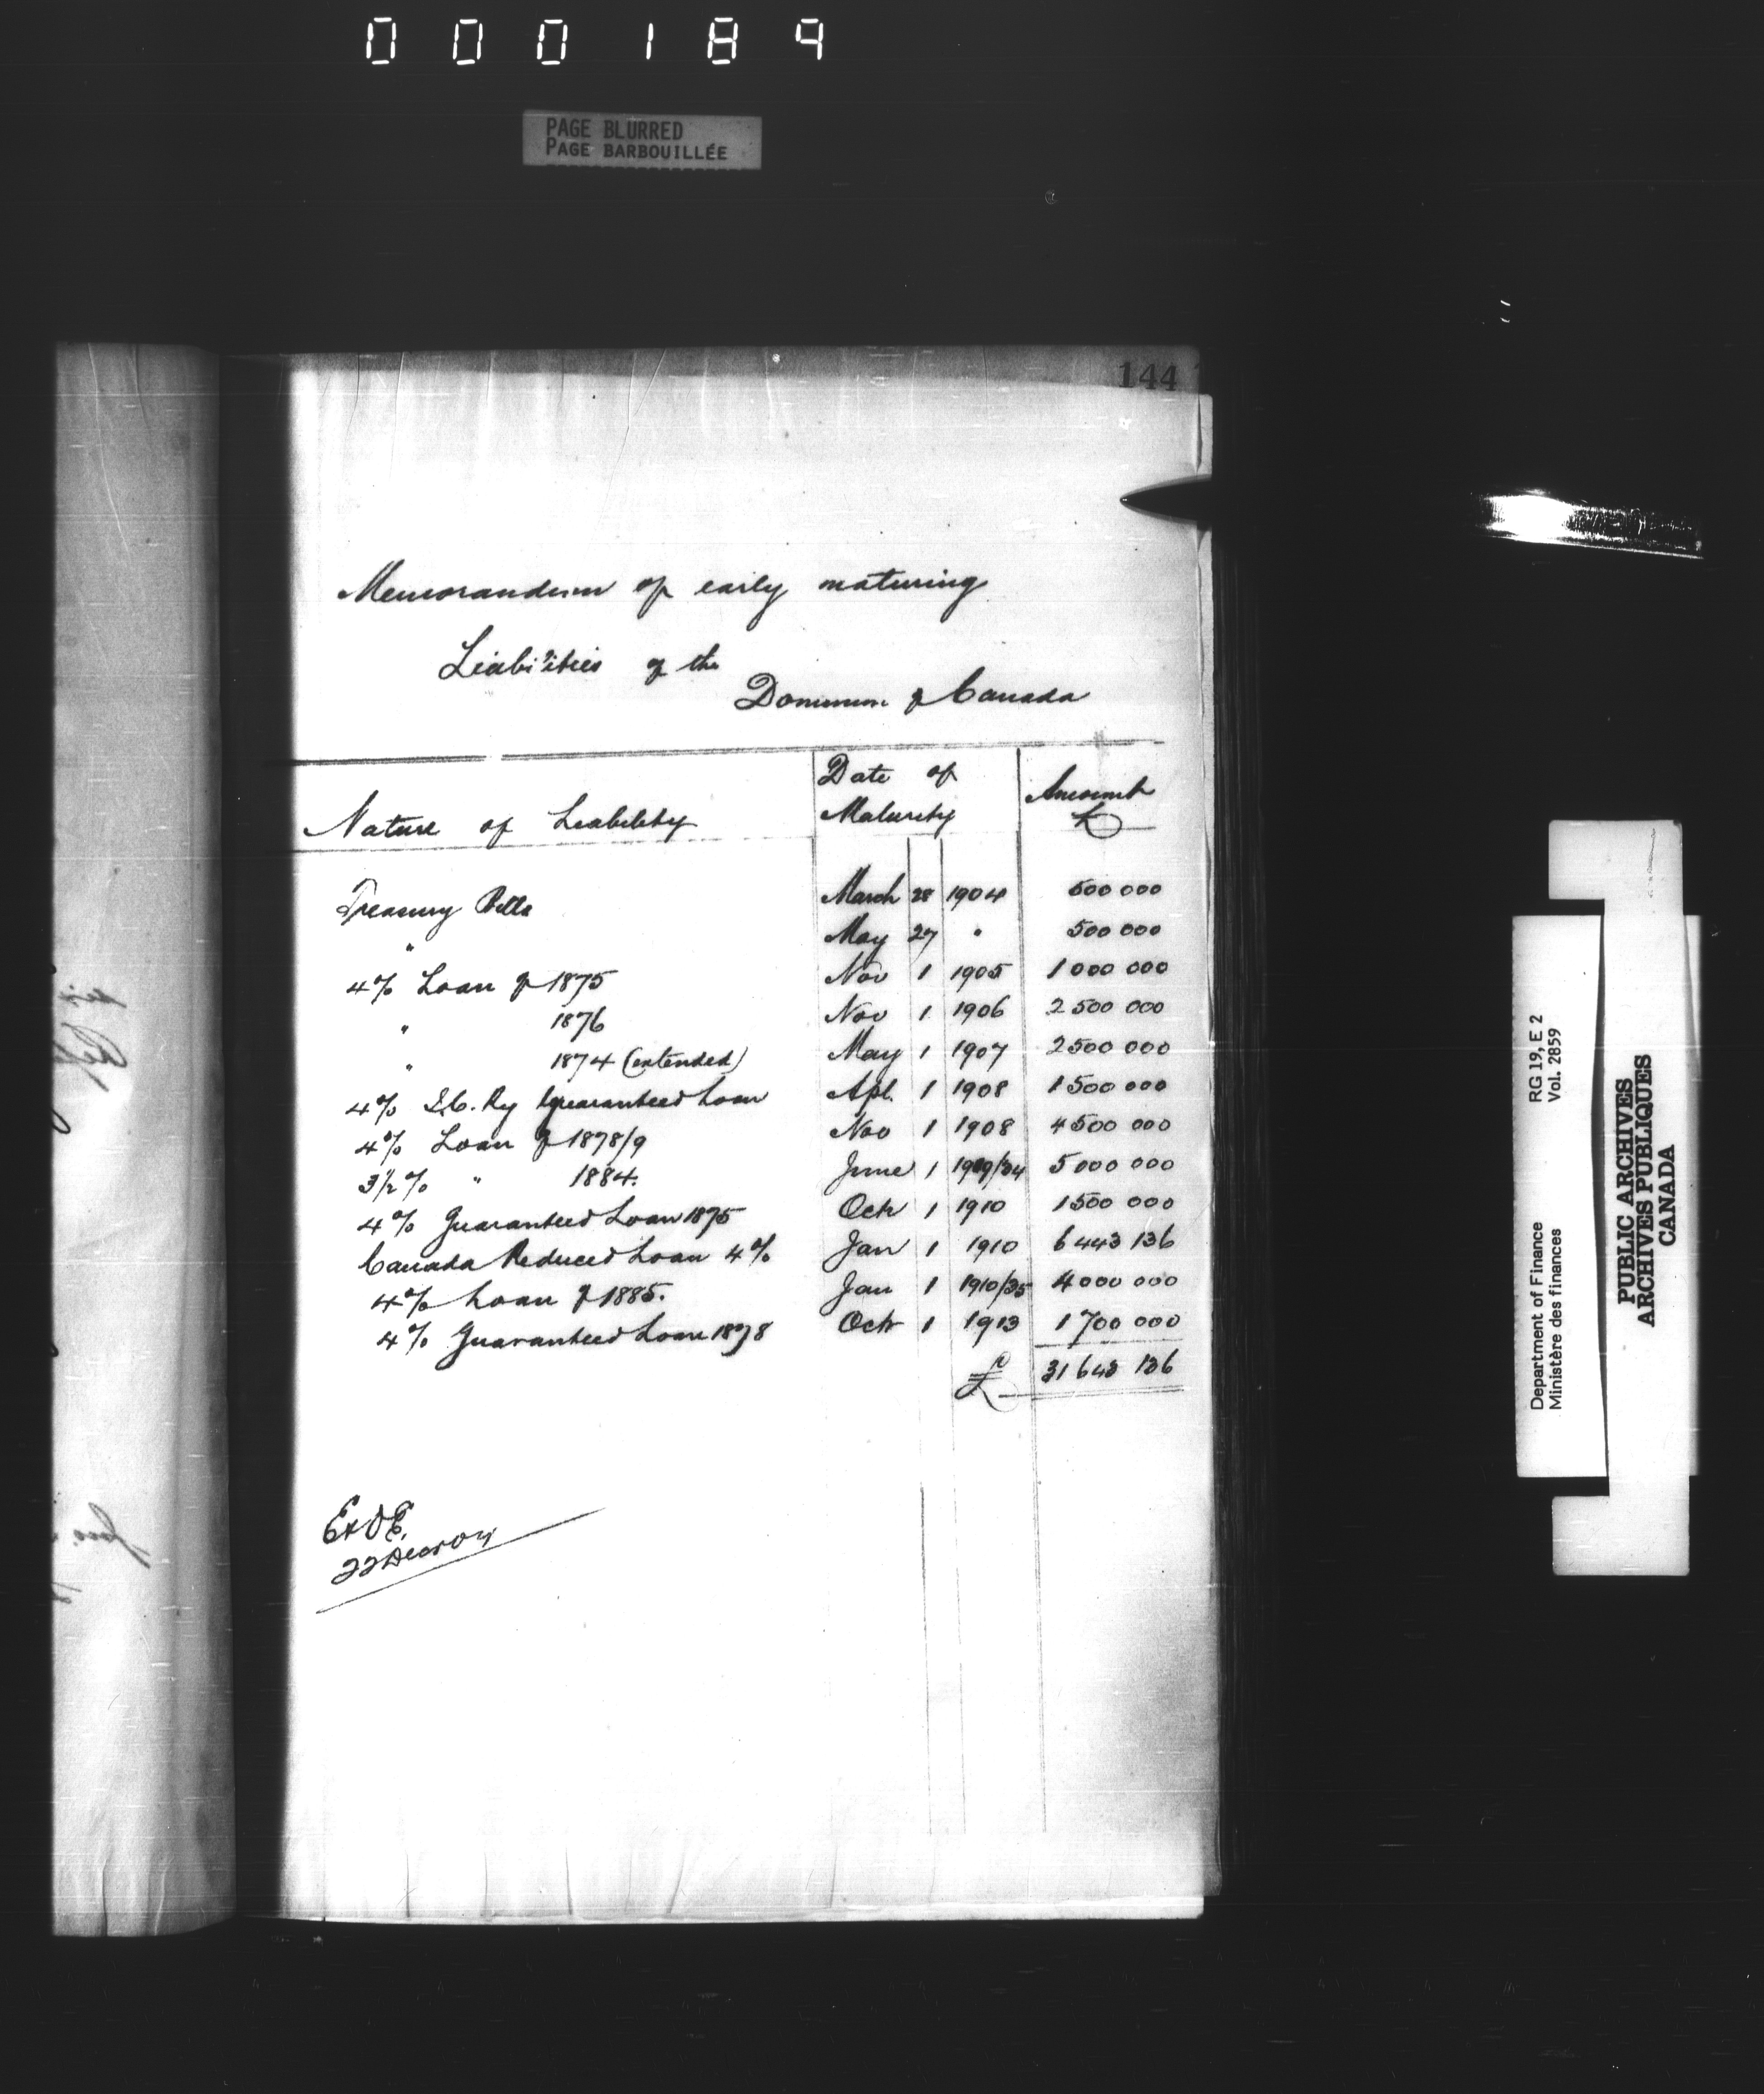 000189
PAGE BLURRED
PAGE BARBOUILLÉE
144
Memorandum of early maturing
Liabilities of the
Dominion of Canada
Nature of Liability Date of Maturity Amount £
Treasury Bills March 28 1904 500 000
" May 27 " 500 000
4% Loan of 1875 Nov 1 1905 1 000 000
" 1876 Nov 1 1906 2 500 000
" 1874 (extended) May 1 1907 2 500 000
4% I.C. Ry Guaranteed Loan Apl. 1 1908 1 500 000
4% Loan of 1878/9 Nov 1 1908 4 500 000
3½% " 1884. June 1 1909/34 5 000 000
4% Guaranteed Loan 1875 Octr 1 1910 1 500 000
Canada Reduced Loan 4% Jan 1 1910 6 443 136
4% Loan of 1885. Jan 1 1910/35 4 000 000
4% Guaranteed Loan 1878 Octr 1 1913 1 700 000
£ 31 643 136
E&OE.
22 Decr
RG 19, E 2
Vol. 2859
Department of Finance
Ministère des finances
PUBLIC ARCHIVES
ARCHIVES PUBLIQUES
CANADA